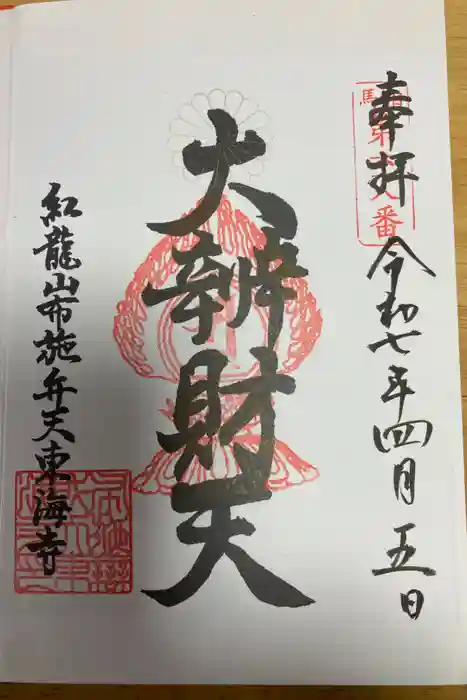 奉拝
令和七年四月五日
番
大辨財天
紅龍山布施弁天東海寺